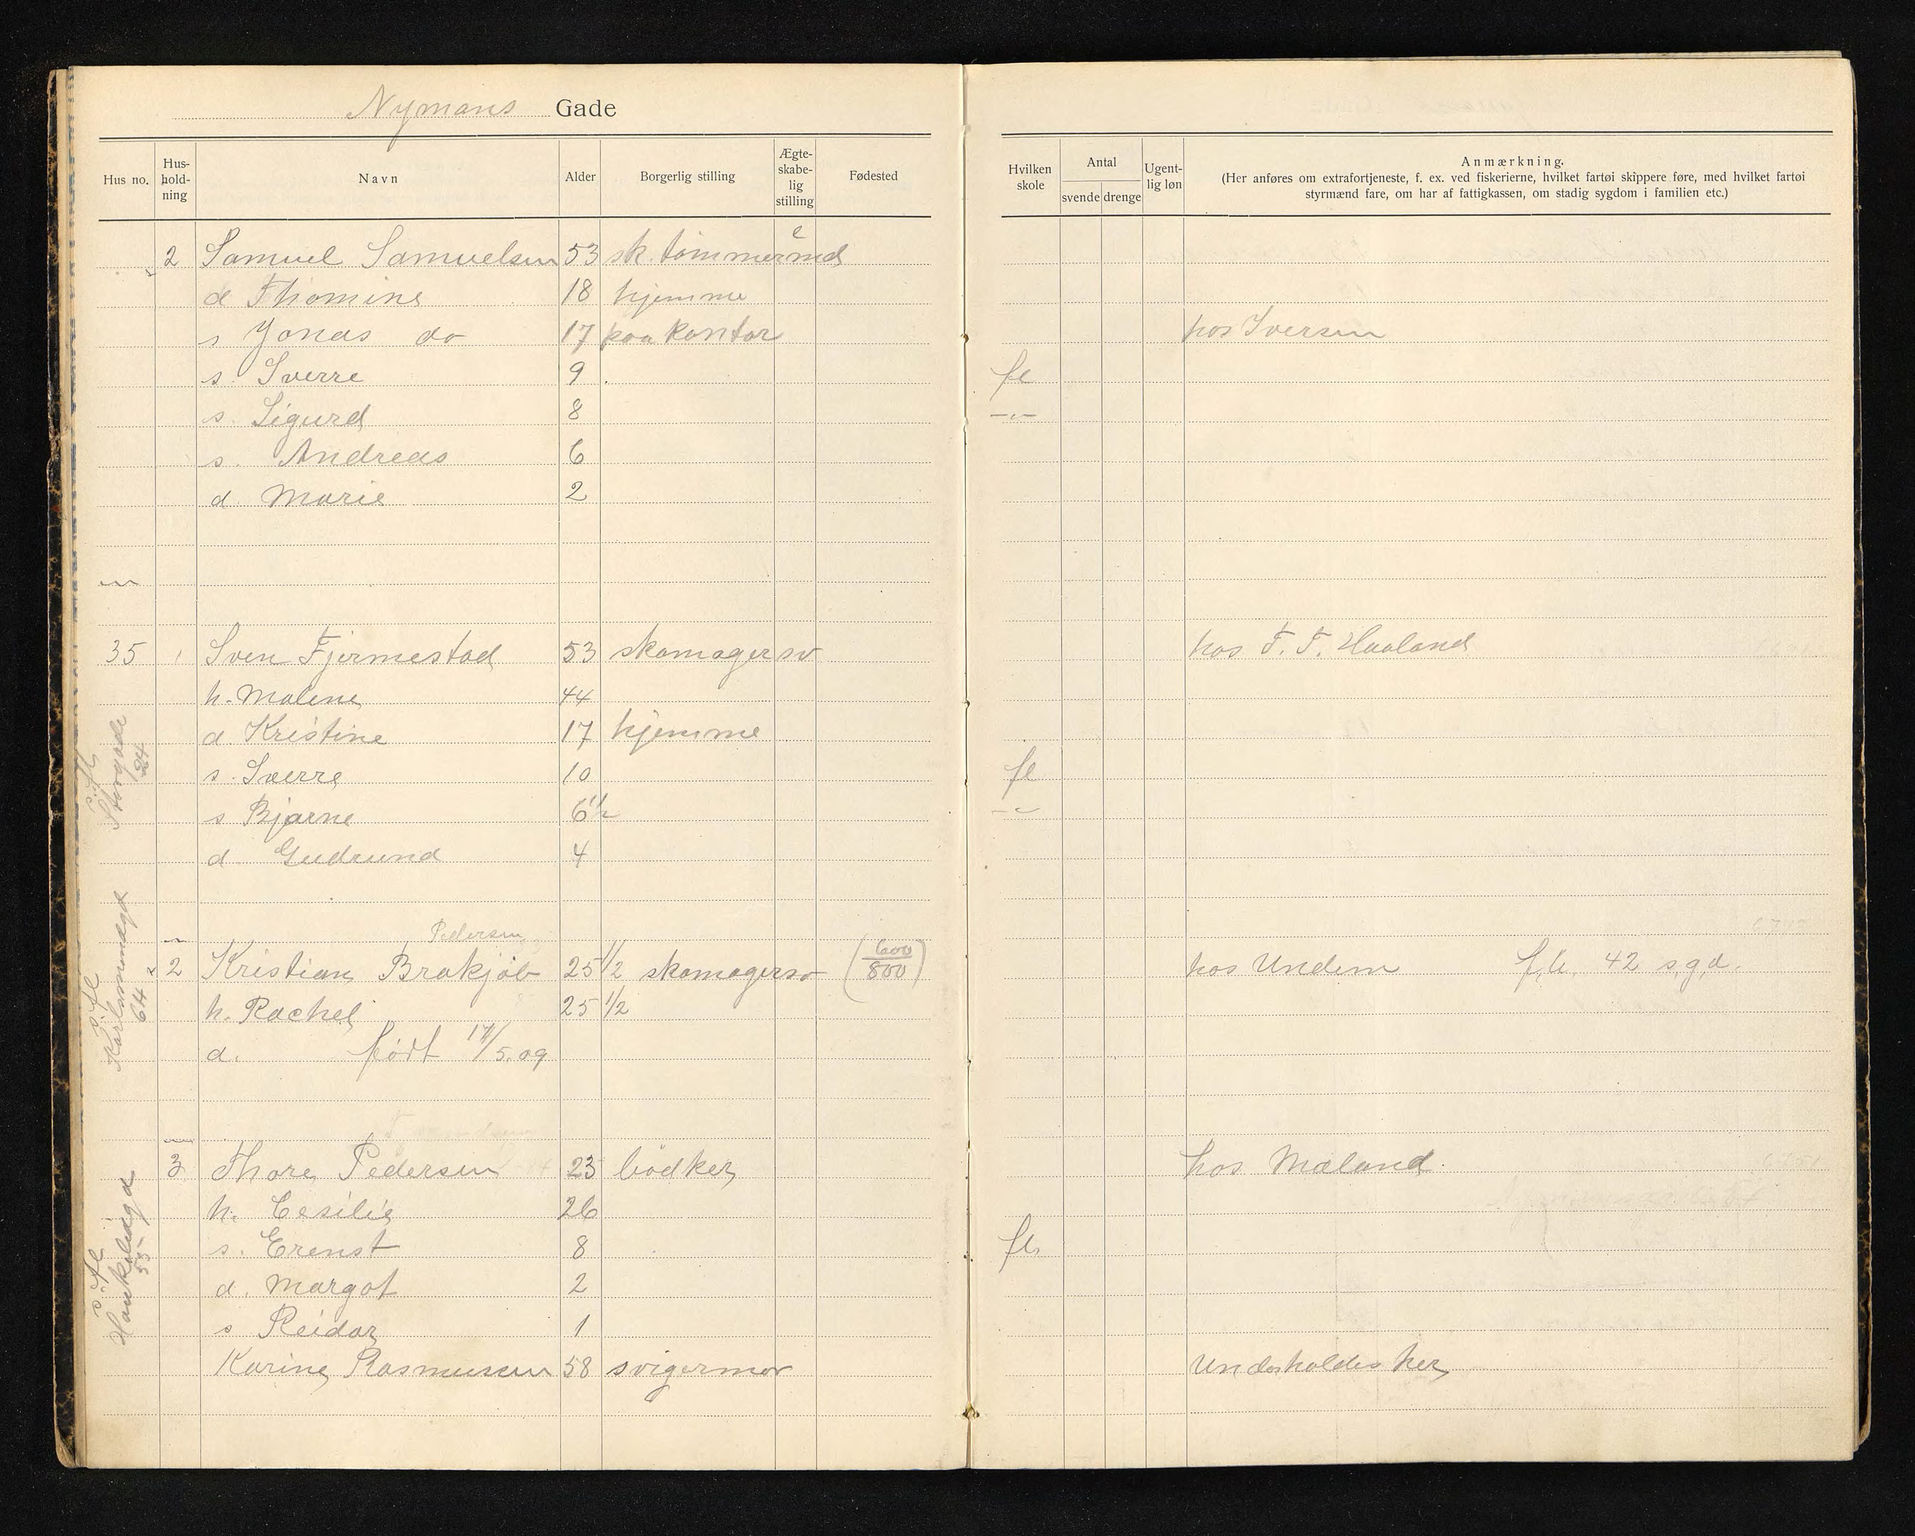 Nymans Gade
Hus no. Hus-hold-ning Navn Alder Borgerlig stilling Ægte-skabe-lig stilling Fødested
Hvilken skole Antal svende drenge Ugent-lig løn Anmærkning.
(Her anføres om extrafortjeneste, f. ex. ved fiskerierne, hvilket fartøi skippere føre, med hvilket fartøi
styrmænd fare, om har af fattigkassen, om stadig sygdom i familien etc.)
2 Samuel Samuelsen 53 sk. tømmermd e
d Thomine 18 hjemme
s Jonas do 17 paa kontor hos Iversen
s. Sverre 9 fl
s. Sigurd 8 -"-
s. Andreas 6
d Marie 2
35 1 Sven Fjermestad 53 skomagersv hos F. F. Haaland
h. Malene 44
d Kristine 17 hjemme
s. Sverre 10 fl
s Bjarne 6 1/2 -"-
d Gudrund 4
fl Storgade 24
Pedersen
2 Kristian Brakjøb 25 1/2 skomagersv (600/800) hos Undem 42 s,g,d.
h. Rachel 25 1/2
d. født 17/5.09
fl Karlsminnegt 64
3 Thore Pedersen 23 bødker hos Maland.
h. Cesilie 26
s. Erenst 8 fl
d. Margot 2
s Reidar 1
Karine Rasmussen 58 svigermor Underholdes her
fl 55